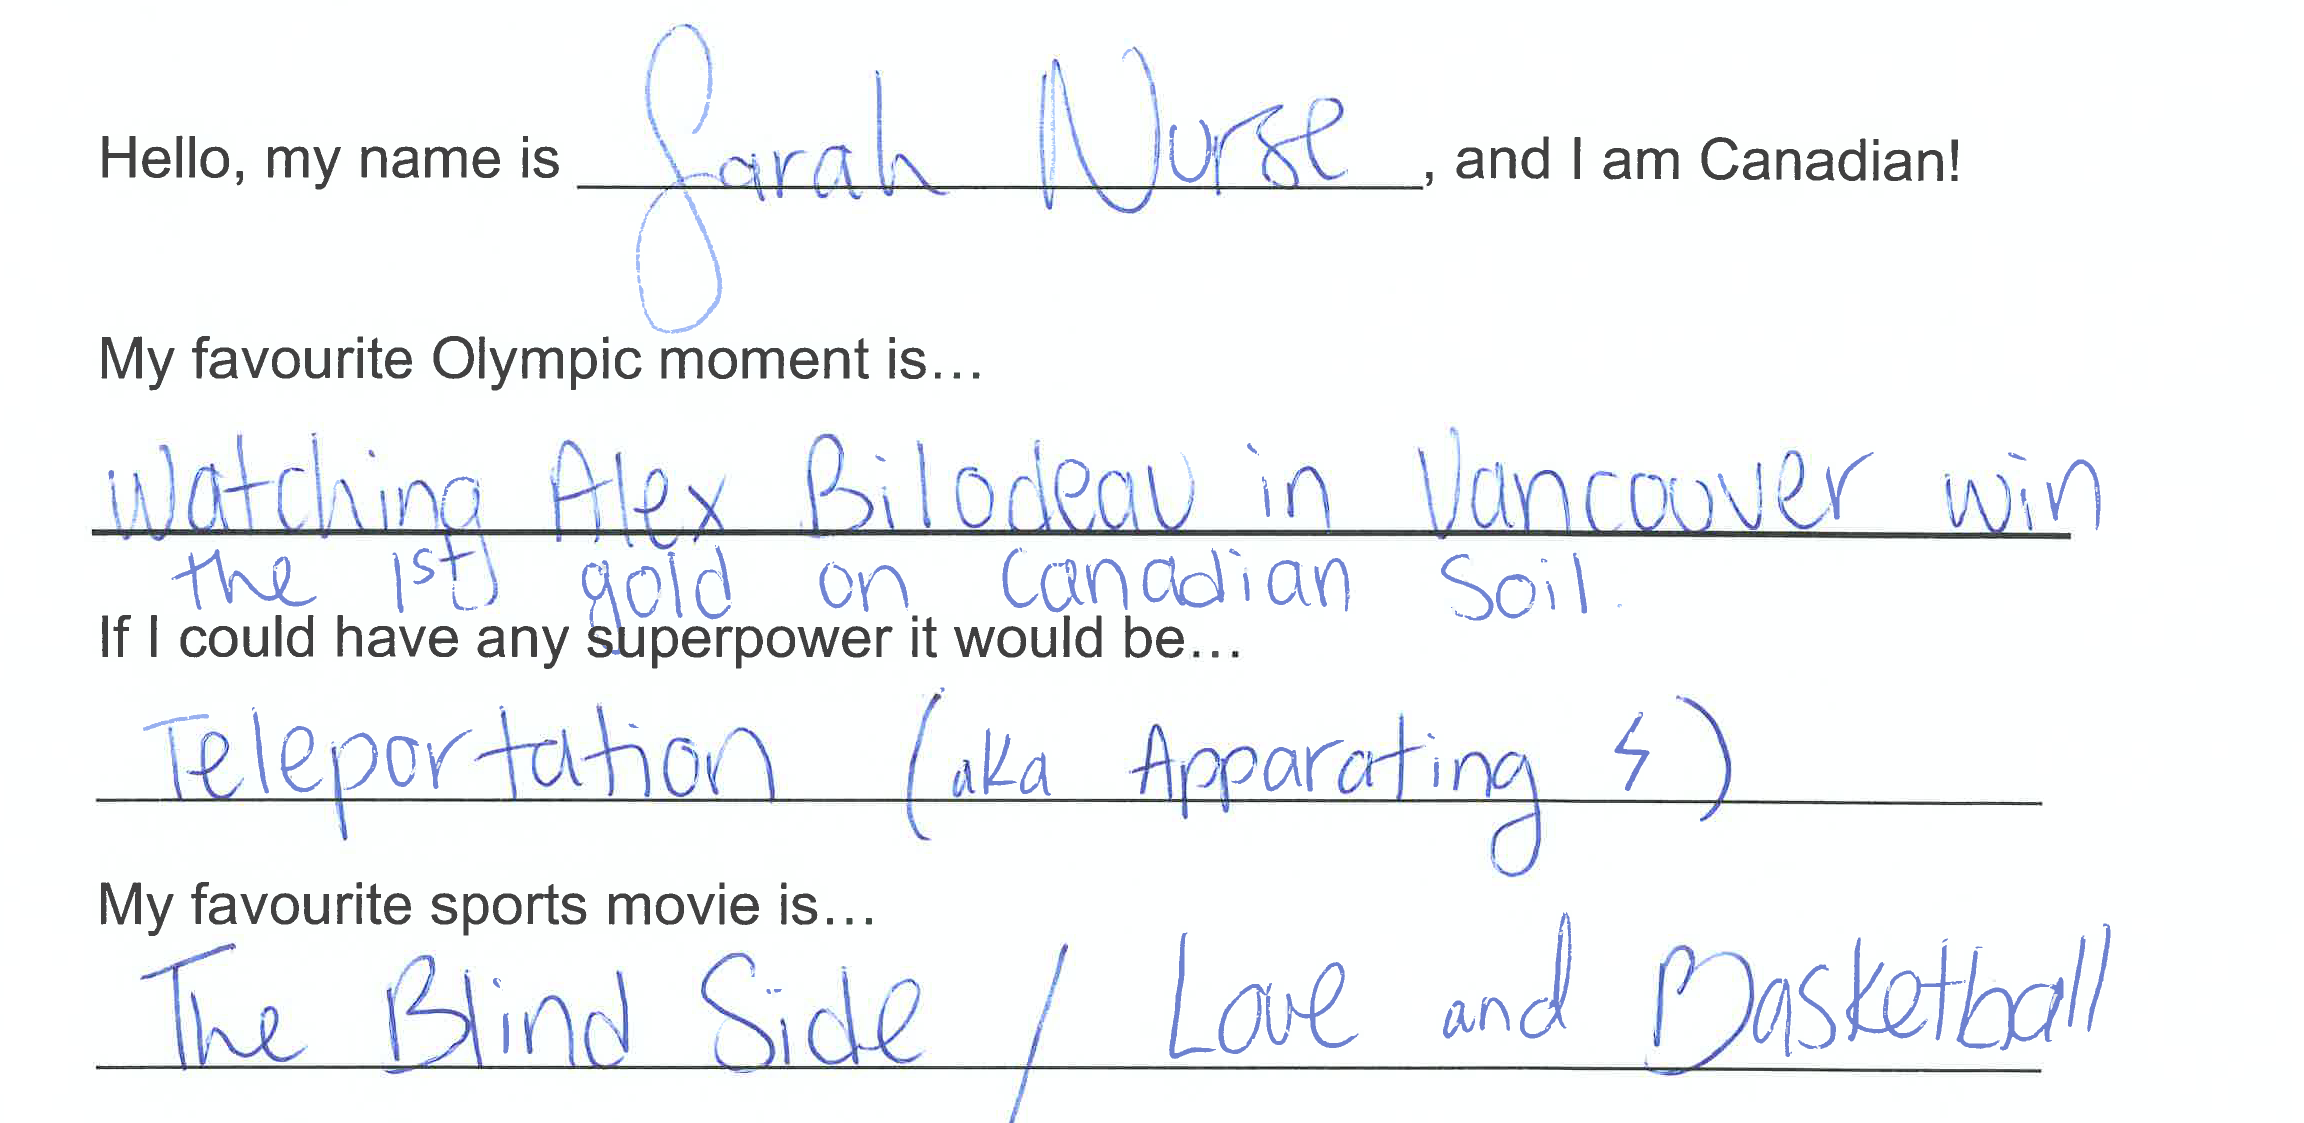 Hello, my name is Sarah Nurse, and I am Canadian!
My favourite Olympic moment is…
Watching Alex Bilodeau in Vancouver win
the 1st gold on Canadian Soil.
If I could have any superpower it would be…
Teleportation (aka Apparating ϟ)
My favourite sports movie is…
The Blind Side / Love and Basketball